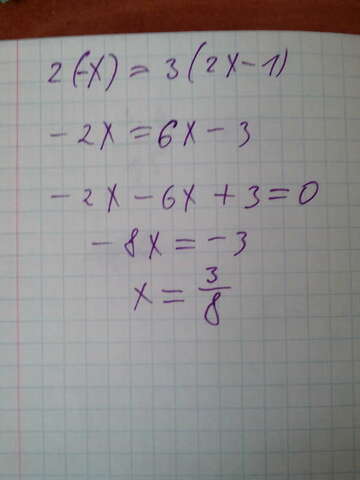 2(-x) = 3(2x-1)
-2x = 6x - 3
-2x - 6x + 3 = 0
-8x = -3
x = 3/8